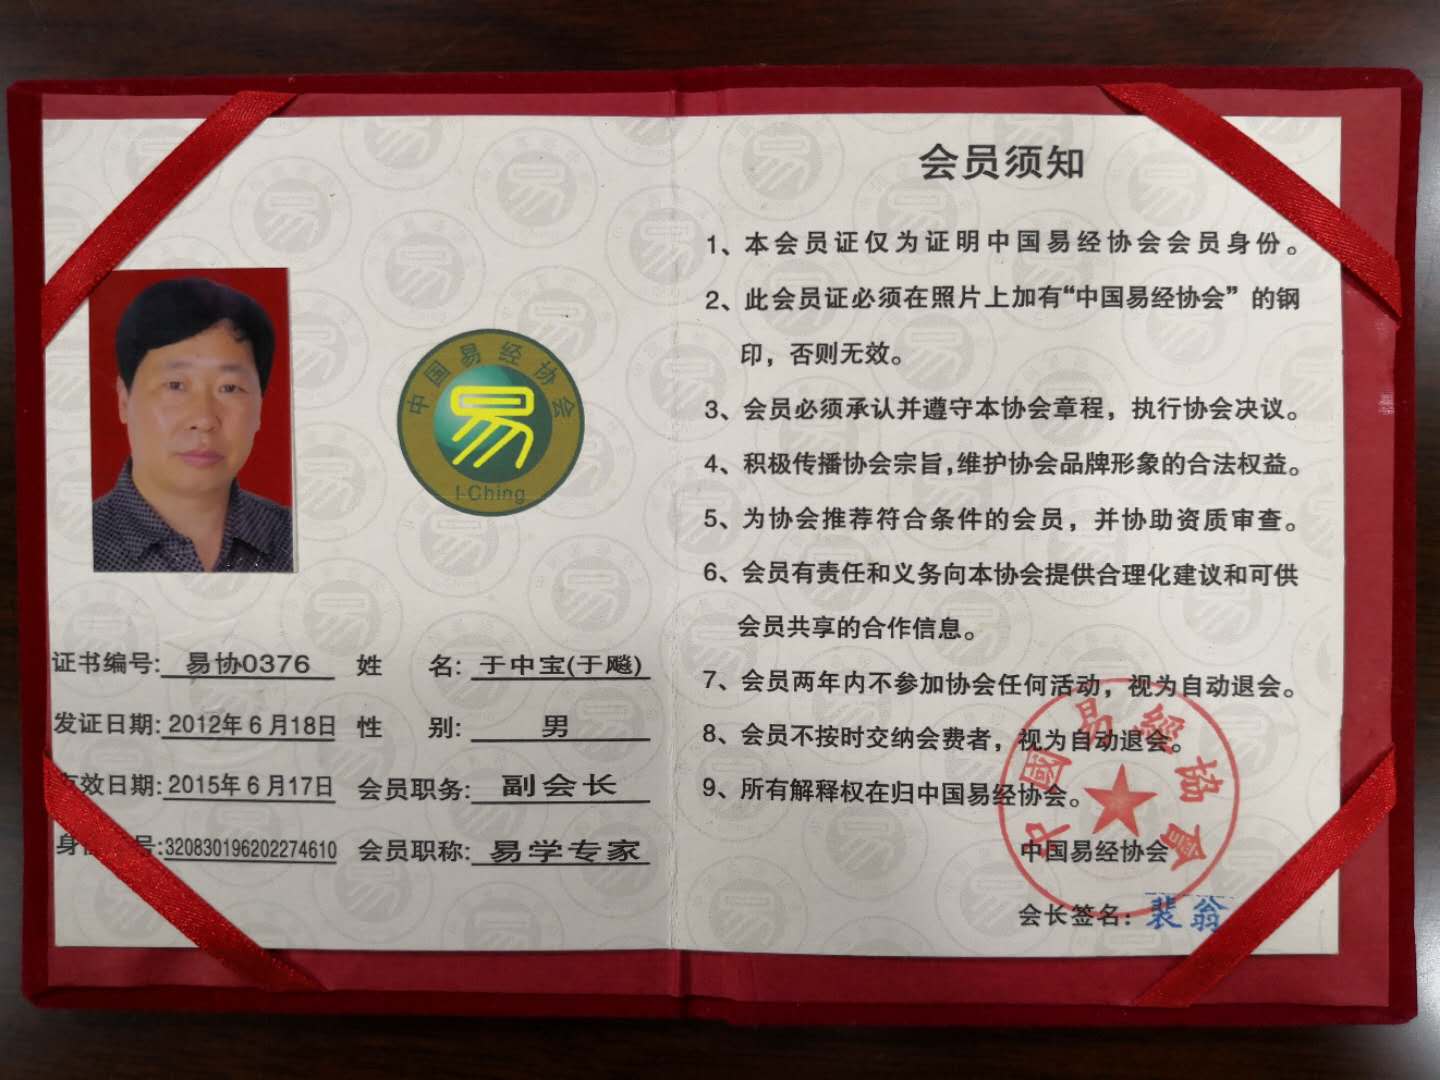 中国易经协会
易
I-Ching
证书编号: 易协0376 姓 名: 于中宝(于飚)
发证日期: 2012年6月18日 性 别: 男
有效日期: 2015年6月17日 会员职务: 副会长
身 号: 320830196202274610 会员职称: 易学专家
会员须知
1、本会员证仅为证明中国易经协会会员身份。
2、此会员证必须在照片上加有“中国易经协会”的钢
印，否则无效。
3、会员必须承认并遵守本协会章程，执行协会决议。
4、积极传播协会宗旨,维护协会品牌形象的合法权益。
5、为协会推荐符合条件的会员，并协助资质审查。
6、会员有责任和义务向本协会提供合理化建议和可供
会员共享的合作信息。
7、会员两年内不参加协会任何活动，视为自动退会。
8、会员不按时交纳会费者，视为自动退会。
9、所有解释权在归中国易经协会。
中國易經協會
中国易经协会
会长签名: 裴翁